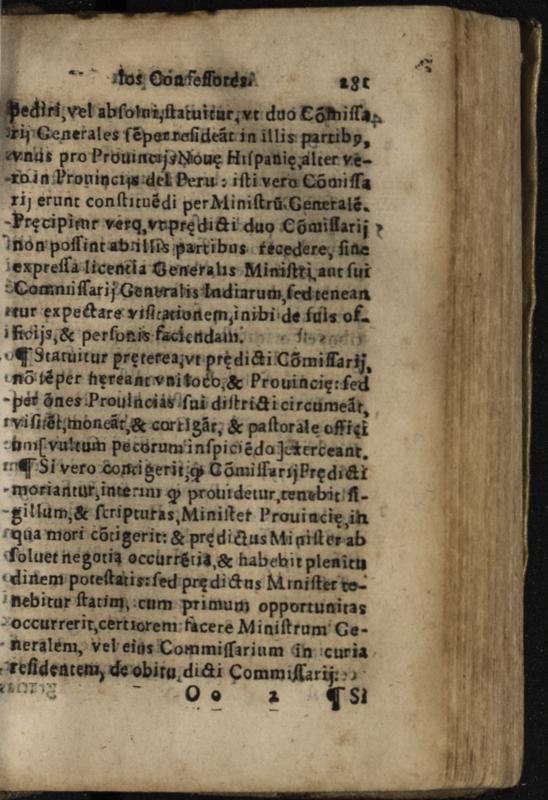 los Confessores. 281
pediri, vel absolui, statuitur, vt duo Cõmissa-
rij Generales sẽper resideãt in illis partibꝰ,
vnus pro Prouincijs Nouę Hispanię, alter ve-
ro in Prouincijs del Peru: isti vero Cõmissa
rij erunt constituẽdi per Ministrũ Generalẽ.
Pręcipitur verò, vt prędicti duo Cõmissarij
non possint ab illis partibus recedere, sine
expressa licentia Generalis Ministri, aut sui
Commissarij Generalis Indiarum, sed tenean
tur expectare visitationem, inibi de suis of-
ficijs, & personis faciendam.
¶ Statuitur pręterea, vt prędicti Cõmissarij,
nõ sẽper hęreant vni loco, & Prouincię: sed
per õnes Prouincias sui districti circumeãt,
visitẽt, moneãt, & corrigãt, & pastorale offici
um [vultum pecorum inspiciẽdo] exerceant.
¶ Si vero contigerit, ꝙ Cõmissarij Prędicti
moriantur, interim ꝙ prouidetur, tenebit si-
gillum, & scripturas, Minister Prouincię, in
qua mori cõtigerit: & prędictus Minister ab
soluet negotia occurrẽtia, & habebit plenitu
dinem potestatis: sed prędictus Minister te-
nebitur statim, cum primum opportunitas
occurrerit, certiorem facere Ministrum Ge-
neralem, vel eius Commissarium in curia
residentem, de obitu dicti Commissarij.
O o 2 ¶ Si